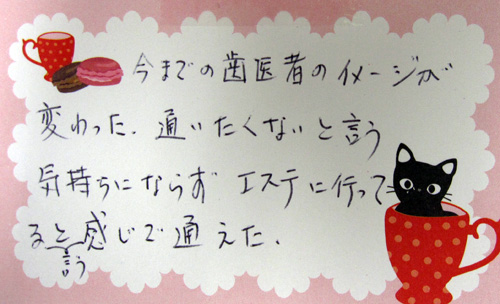 今までの歯医者のイメージが
変わった.通いたくないと言う
気持ちにならず エステに行って
ると感じで通えた.
言う